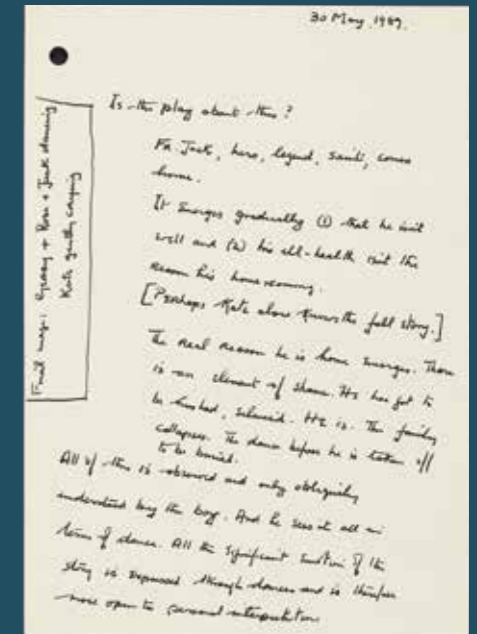 30 May 1989.
Is this play about this?
Fr. Jack, hero, legend, saint, comes
home.
It emerges gradually (1) that he isn't
well and (2) his ill-health isn't the
reason his homecoming.
[Perhaps Kate alone knows the full story.]
The real reason he is home emerges. There
is an element of shame. He has got to
be hushed, silenced. He is. The family
collapses. The dance before he is taken off
to be buried.
All of this is observed and only obliquely
understood by the boy. And he sees it all in
terms of dance. All the significant emotion of the
story is expressed through dances and is therefore
more open to personal interpretation
Final image: + Rose + Jack dancing
Kate quietly